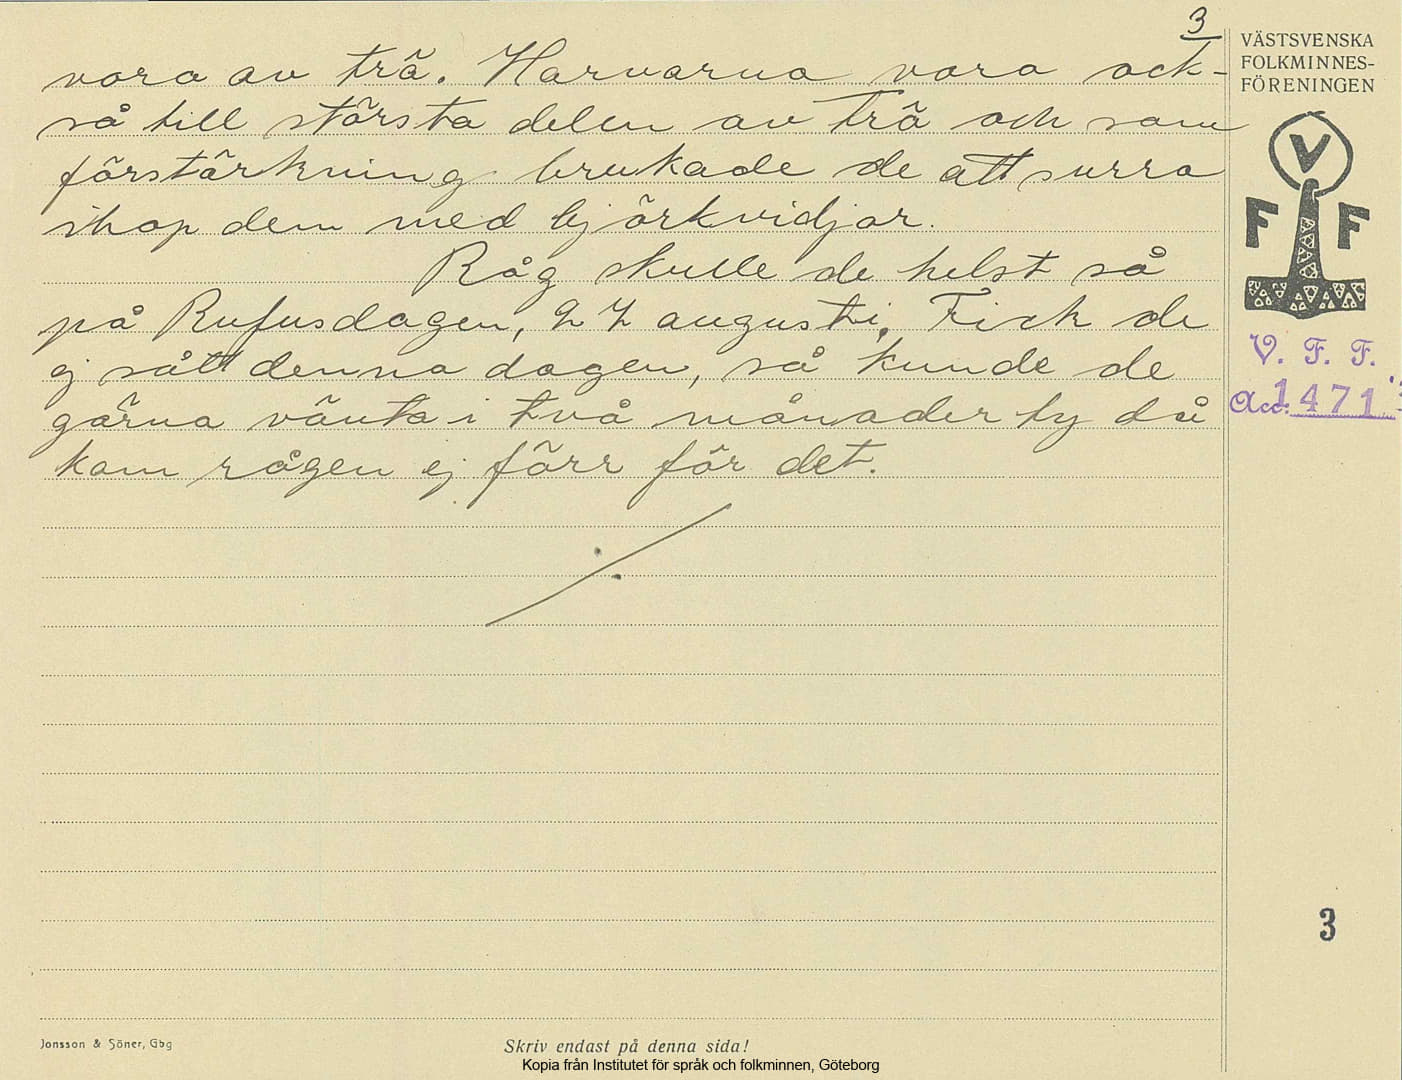 3
vora av trä. Harvarna vora ock-
så till största delen av trä och som
förstärkning brukade de att surra
ihop dem med björkvidjor.
Råg skulle de helst så
på Rufusdagen, 27 augusti. Fick de
ej sått denna dagen, så kunde de
gärna vänta i två månader ty då
kom rågen ej förr för det.
VÄSTSVENSKA
FOLKMINNES-
FÖRENINGEN
V
F F
V. F. F.
Acc. 1471
3
Jonsson & Söner, Gbg
Skriv endast på denna sida!
Kopia från Institutet för språk och folkminnen, Göteborg